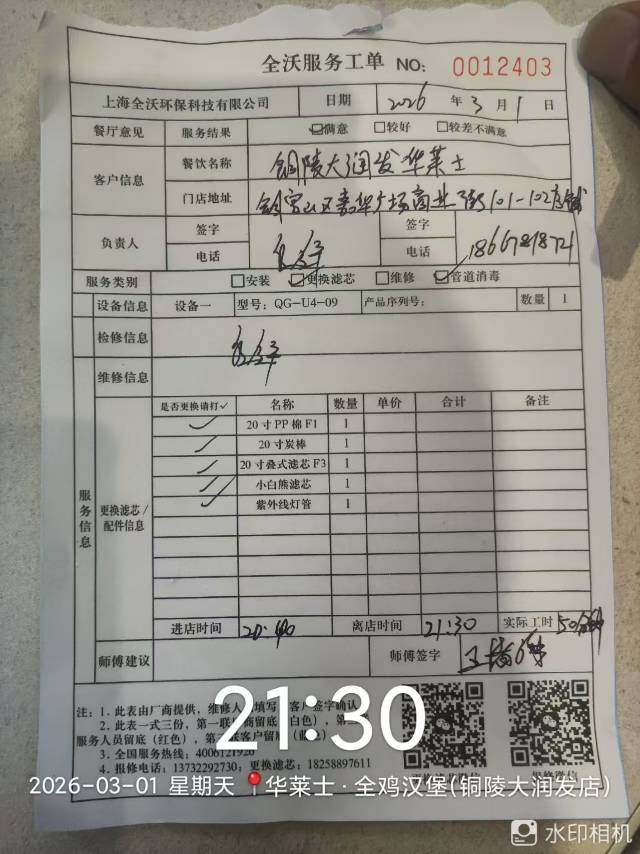 全沃服务工单 NO: 0012403
上海全沃环保科技有限公司 日期 2026 年 3 月 1 日
餐厅意见 服务结果 ☑满意 □较好 □较差不满意
客户信息 餐饮名称 铜陵大润发华莱士
门店地址 铜官山区嘉华广场商业街101-102店铺
负责人 签字 签字
电话 电话
服务类别 □安装 ☑更换滤芯 □维修 ☑管道消毒
设备信息 设备一 型号: QG-U4-09 产品序列号: 数量 1
检修信息
维修信息
服务信息
更换滤芯/配件信息
是否更换请打✓ 名称 数量 单价 合计 备注
✓ 20寸PP棉F1 1
✓ 20寸炭棒 1
✓ 20寸叠式滤芯F3 1
✓ 小白熊滤芯 1
✓ 紫外线灯管 1
进店时间 20:40 离店时间 21:30 实际工时 50分钟
师傅建议 师傅签字
注: 1. 此表由厂商提供, 维修人 填写 客户签字确认
2. 此表一式三份, 第一联 商留底 白色), 第
服务人员留底(红色), 第 联客户留底(
3. 全国服务热线: 4006121920
4. 报修电话: 13732292730; 更换滤芯: 18258897611
21:30
2026-03-01 星期天 华莱士·全鸡汉堡(铜陵大润发店)
水印相机